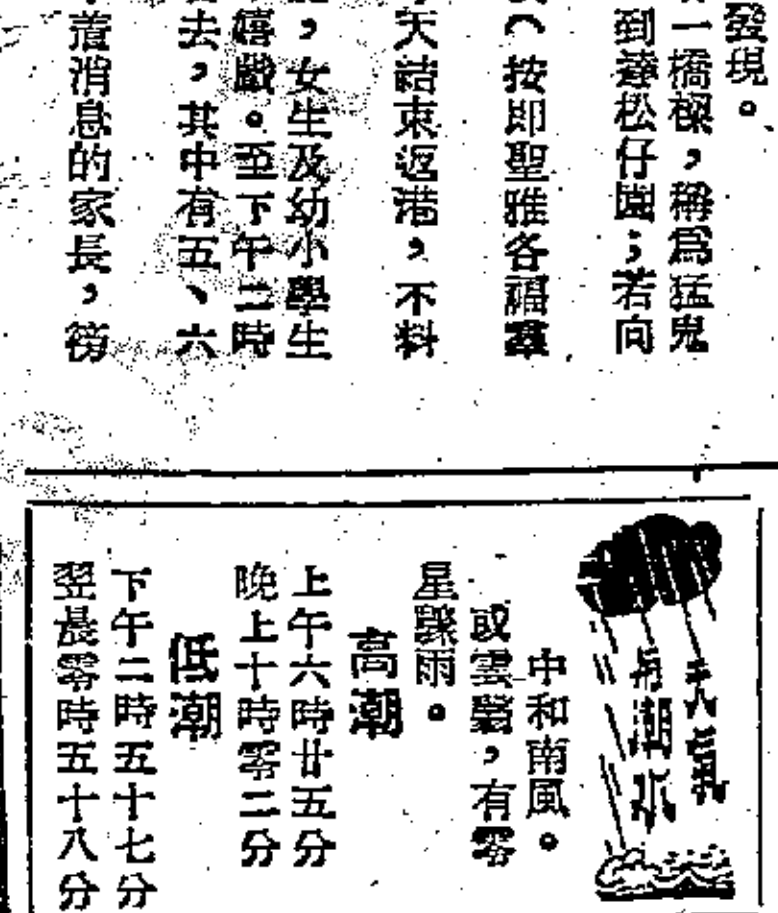 發現。
一橋樑，稱爲猛鬼
到達松仔園；若向
（按即聖雅各福羣
天結束返港，不料
，女生及幼小學生
嬉戲。至下午二時
去，其中有五、六
着消息的家長，徬
天氣
與潮水
中和南風。
或雲翳，有零
星驟雨。
高潮
上午六時廿五分
晚上十時零二分
低潮
下午二時五十七分
翌晨零時五十八分